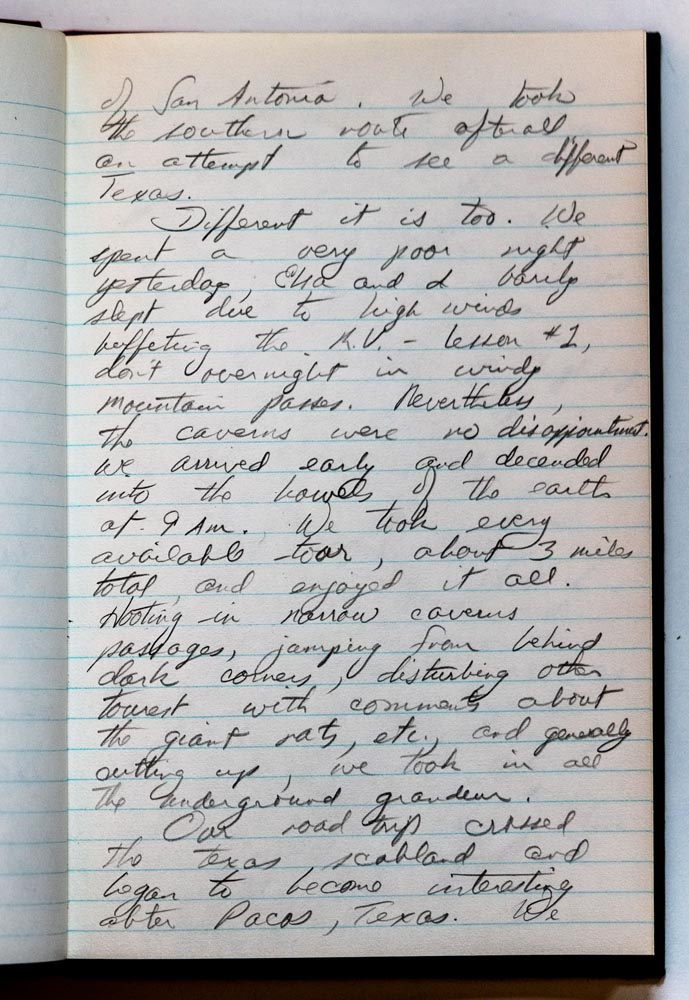 of San Antonio. We took
the southern route afterall,
an attempt to see a different
Texas.
Different it is too. We
spent a very poor night
yesterday, Ella and I barely
slept due to high winds
buffeting the R.V. - Lesson #1,
don't overnight in windy
mountain passes. Nevertheless,
the caverns were no disappointment.
We arrived early and decended
into the bowels of the earth
at 9 Am. We took every
available tour, about 3 miles
total, and enjoyed it all.
Hooting in narrow caverns
passages, jumping from behind
dark corners, disturbing other
tourest with comments about
the giant rats, etc., and generally
cutting up, we took in all
the underground grandeur.
Our road trip crossed
the texas scabland and
began to become interesting
after Pacos, Texas. We